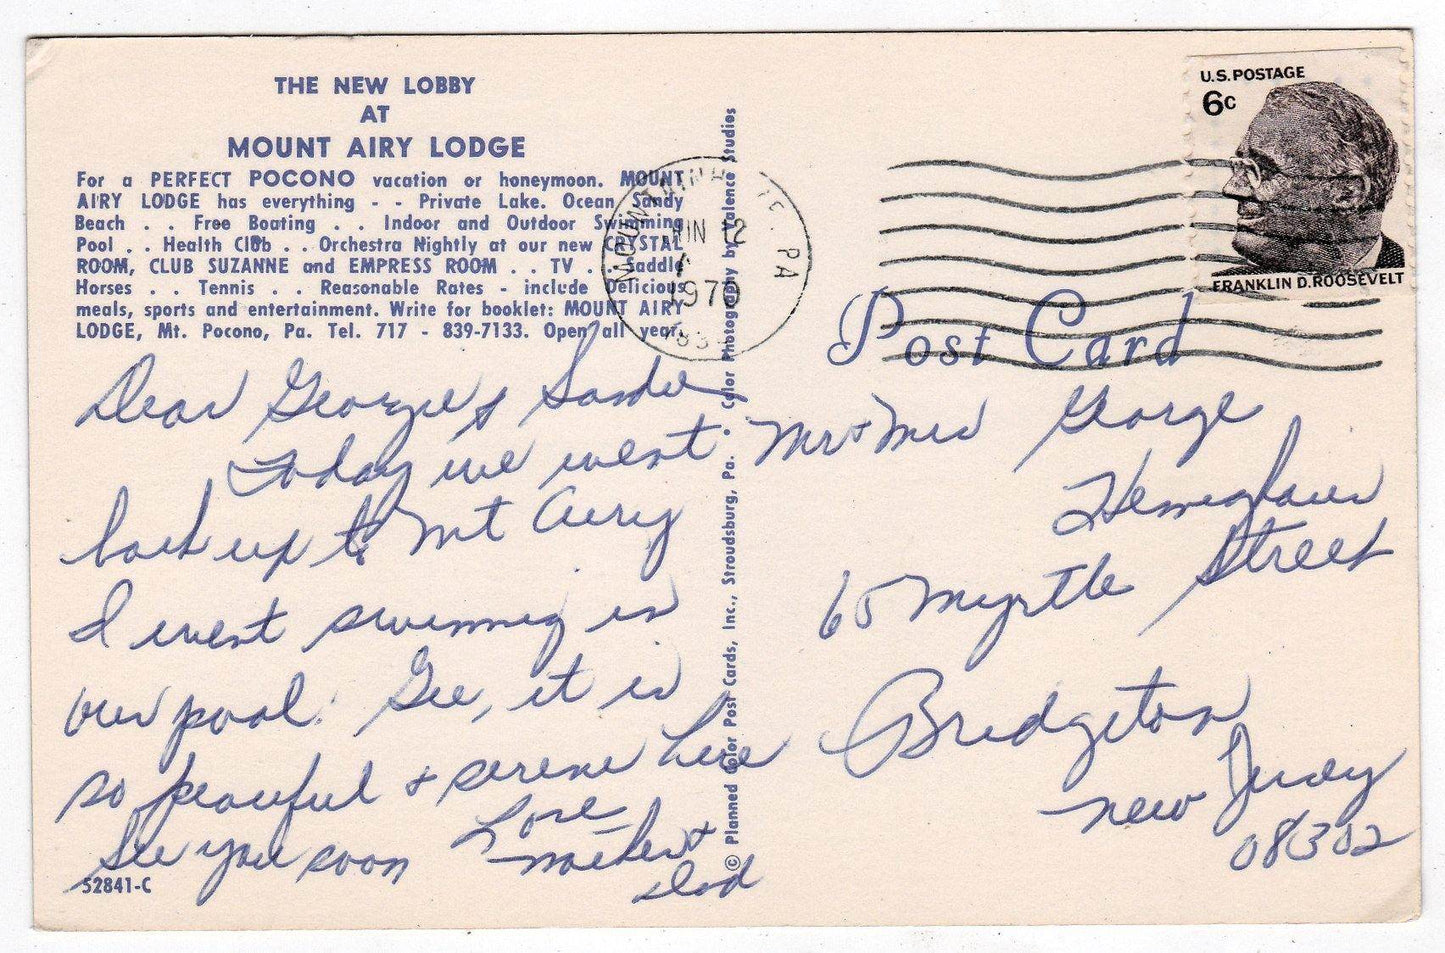 THE NEW LOBBY
AT
MOUNT AIRY LODGE
For a PERFECT POCONO vacation or honeymoon. MOUNT
AIRY LODGE has everything - - Private Lake. Ocean Sandy
Beach . . Free Boating . . Indoor and Outdoor Swimming
Pool . . Health Club . . Orchestra Nightly at our new CRYSTAL
ROOM, CLUB SUZANNE and EMPRESS ROOM . . TV . . Saddle
Horses . . Tennis . . Reasonable Rates - include Delicious
meals, sports and entertainment. Write for booklet: MOUNT AIRY
LODGE, Mt. Pocono, Pa. Tel. 717 - 839-7133. Open all year.
Dear George & Sande
Today we went
back up to Mt Airy
I went swimming in
our pool. Gee, it is
so peaceful + serene here
See you soon
Love
Mother +
Dad
52841-C
© Planned Color Post Cards, Inc., Stroudsburg, Pa. • Color Photography by Valence Studios
PA
JUN 12
1970
U.S. POSTAGE
6c
FRANKLIN D. ROOSEVELT
Post Card
Mr + Mrs George
65 Myrtle Street
Bridgeton
New Jersey
08302